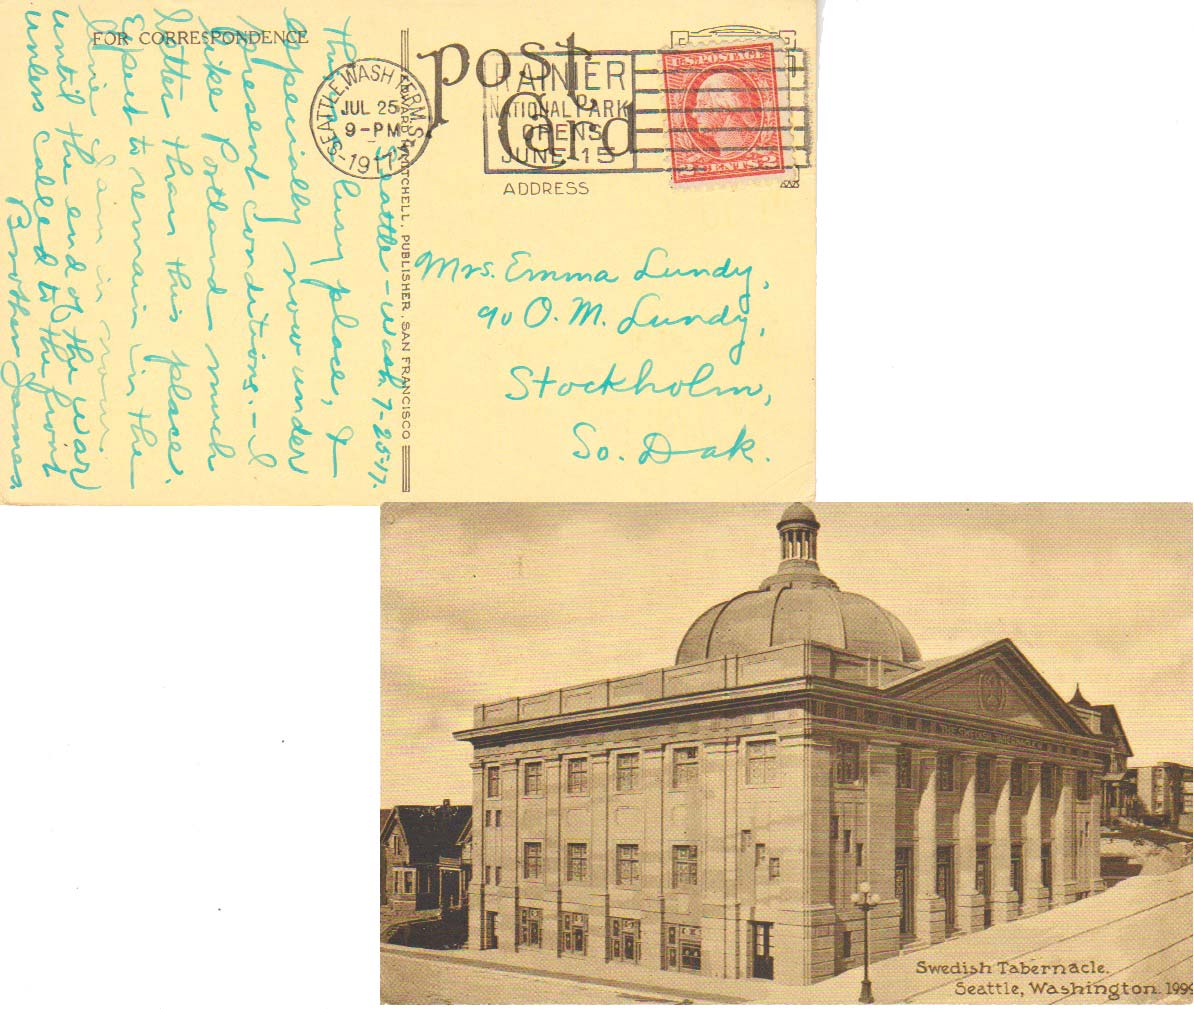 FOR CORRESPONDENCE
post
Card
SEATTLE, WASH. TERM. STA.
JUL 25
9-PM
1917
RAINIER
NATIONAL PARK
OPENS
JUNE 15
U.S. POSTAGE
2 CENTS 2
ADDRESS
EDWARD H. MITCHELL, PUBLISHER, SAN FRANCISCO
Seattle - Wash. 7-25-17.
This is a busy place, &
especially now under
present conditions. - I
like Portland much
better than this place.
Expect to remain in the
I am in now
until the end of the war
unless called to the front
Brother James.
Mrs. Emma Lundy,
% O. M. Lundy,
Stockholm,
So. Dak.
THE SWEDISH TABERNACLE
Swedish Tabernacle.
Seattle, Washington. 1999